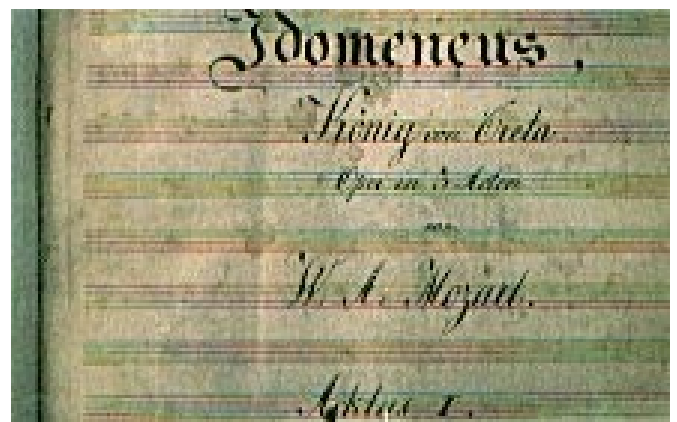 Idomeneus,
König von Creta.
Oper in 3 Akten
von
W. A. Mozart.
Aktus I.